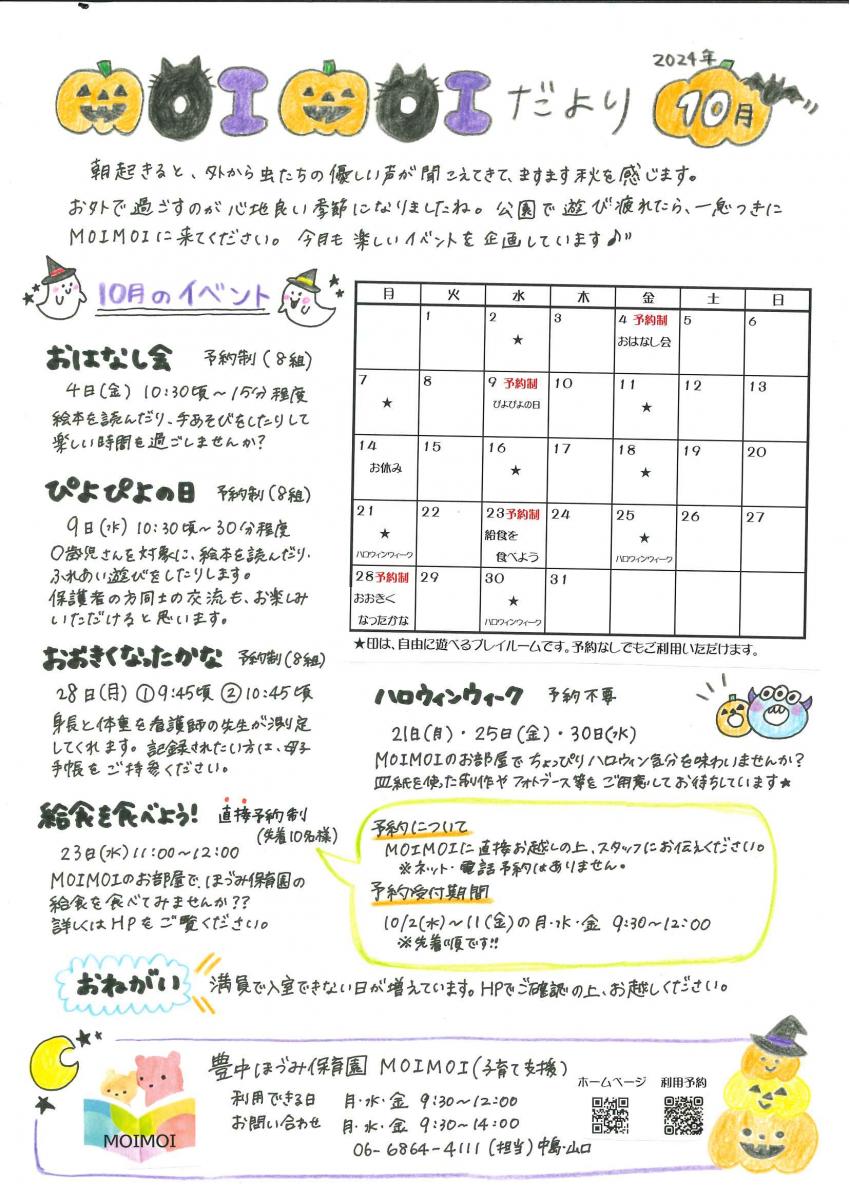 MOIMOIだより 2024年 10月
朝起きると、外から虫たちの優しい声が聞こえてきて、ますます秋を感じます。
お外で過ごすのが心地良い季節になりましたね。公園で遊び疲れたら、一息つきに
MOIMOIに来てください。今月も楽しいイベントを企画しています♪
10月のイベント
おはなし会 予約制(8組)
4日(金) 10:30頃〜15分程度
絵本を読んだり、手あそびをしたりして
楽しい時間を過ごしませんか?
ぴよぴよの日 予約制(8組)
9日(水) 10:30頃〜30分程度
0歳児さんを対象に、絵本を読んだり、
ふれあい遊びをしたりします。
保護者の方同士の交流も、お楽しみ
いただけると思います。
おおきくなったかな 予約制(8組)
28日(月) ①9:45頃 ②10:45頃
身長と体重を看護師の先生が測定
してくれます。記録されたい方は、母子
手帳をご持参ください。
給食を食べよう! 直接予約制
(先着10名様)
23日(水) 11:00〜12:00
MOIMOIのお部屋で、ほづみ保育園の
給食を食べてみませんか??
詳しくはHPをご覧ください。
月 火 水 木 金 土 日
1 2 3 4 予約制 5 6
★ おはなし会
7 8 9 予約制 10 11 12 13
★ ぴよぴよの日 ★
14 15 16 17 18 19 20
お休み ★ ★
21 22 23 予約制 24 25 26 27
★ 給食を ★
ハロウィンウィーク 食べよう ハロウィンウィーク
28 予約制 29 30 31
おおきく ★
なったかな ハロウィンウィーク
★印は、自由に遊べるプレイルームです。予約なしでもご利用いただけます。
ハロウィンウィーク 予約不要
21日(月)・25日(金)・30日(水)
MOIMOIのお部屋でちょっぴりハロウィン気分を味わいませんか?
皿紙を使った制作やフォトブース等をご用意してお待ちしています★
予約について
MOIMOIに直接お越しの上、スタッフにお伝えください。
※ネット・電話予約はありません。
予約受付期間
10/2(水)〜11(金)の月・水・金 9:30〜12:00
※先着順です!!
おねがい 満員で入室できない日が増えています。HPでご確認の上、お越しください。
豊中ほづみ保育園 MOIMOI(子育て支援)
利用できる日 月・水・金 9:30〜12:00
お問い合わせ 月・水・金 9:30〜14:00
06-6864-4111 (担当) 中島・山口
ホームページ 利用予約
MOIMOI